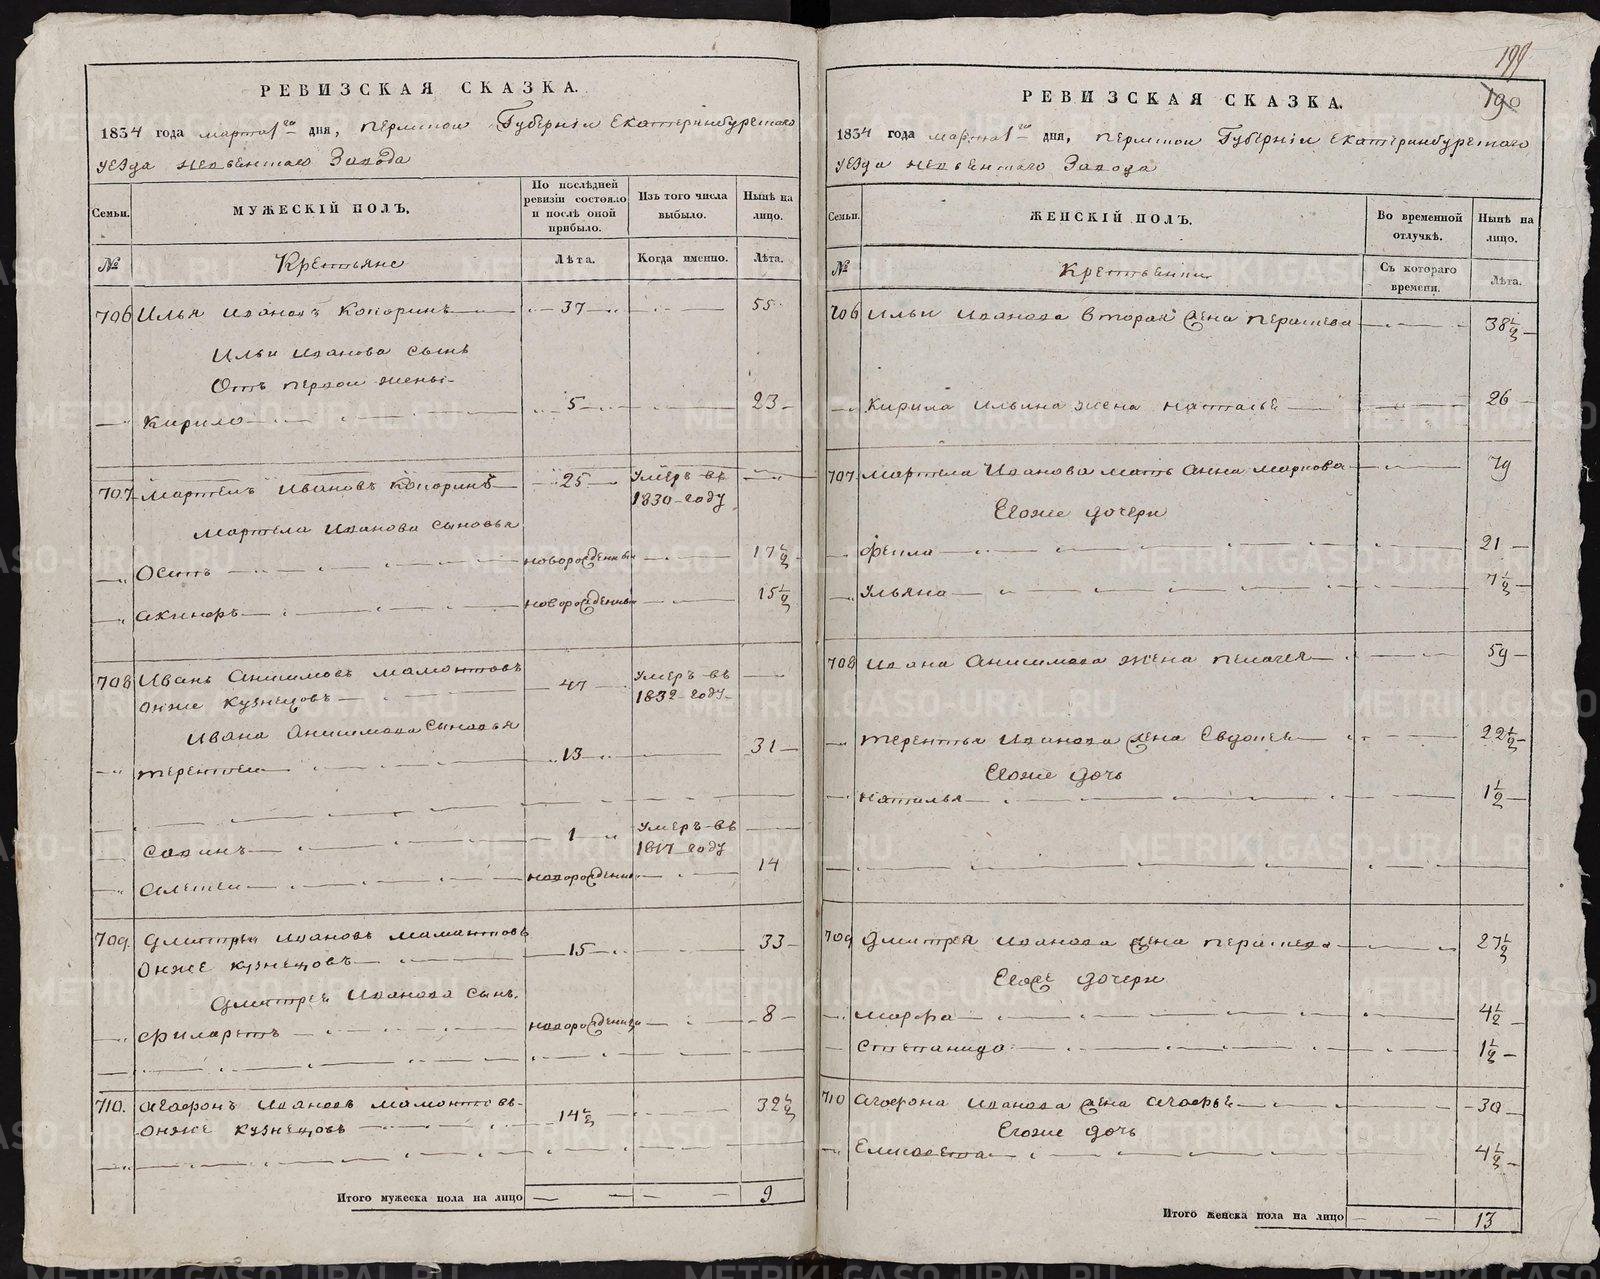 199
190
РЕВИЗСКАЯ СКАЗКА.
1834 года марта 1го дня, Пермской Губерніи Екатеринбургскаго
уезда Невьенскаго Завода
Семьи.
МУЖЕСКІЙ ПОЛЪ.
По послѣдней ревизіи состояло и послѣ оной прибыло.
Изъ того числа выбыло.
Нынѣ на лицо.
№
Крестьяне
Лѣта.
Когда именно.
Лѣта.
706 Илья Ивановъ Копоринъ 37 55
Ильи Иванова сынъ
Отъ первой жены
Кирило 5 23
707 Мартемъ Ивановъ Копоринъ 25 Умеръ въ 1830 году
Мартема Иванова сыновья
Осипъ новорожденный 17 ½
Акинфъ новорожденный 15 ½
708 Иванъ Анисимовъ Мамонтовъ
онже Кузнецовъ 47 Умеръ въ 1832 году
Ивана Анисимова сыновья
Терентей 13 31
Савинъ 1 Умеръ въ 1817 году
Алексей новорожденный 14
709. Дмитрей Ивановъ Мамонтовъ
онже Кузнецовъ 15 33
Дмитрея Иванова сынъ
Филаретъ новорожденный 8
710. Агафонъ Ивановъ Мамонтовъ
онже Кузнецовъ 14 ½ 32 ½
Итого мужеска пола на лицо 9
РЕВИЗСКАЯ СКАЗКА.
1834 года марта 1го дня, Пермской Губерніи Екатеринбургскаго
уезда Невьенскаго Завода
Семьи.
ЖЕНСКІЙ ПОЛЪ.
Во временной отлучкѣ.
Нынѣ на лицо.
№
Крестьянки
Съ котораго времени.
Лѣта.
706 Ильи Иванова вторая жена Парасковья 38 ½
Кирила Ильина жена Наталья 26
707 Мартема Иванова мать Анна Маркова 79
Егоже дочери
Фекла 21
Ульяна 7 ½
708 Ивана Анисимова жена Пелагея 59
Терентья Иванова жена Евдокея 22 ½
Егоже дочь
Наталья 1 ½
709 Дмитрея Иванова жена Парасковья 27 ½
Егоже дочери
Марфа 4 ½
Степанида 1 ½
710 Агафона Иванова жена Агафья 30
Егоже дочь
Елисавета 4 ½
Итого женска пола на лицо 13
METRIKI.GASO-URAL.RU